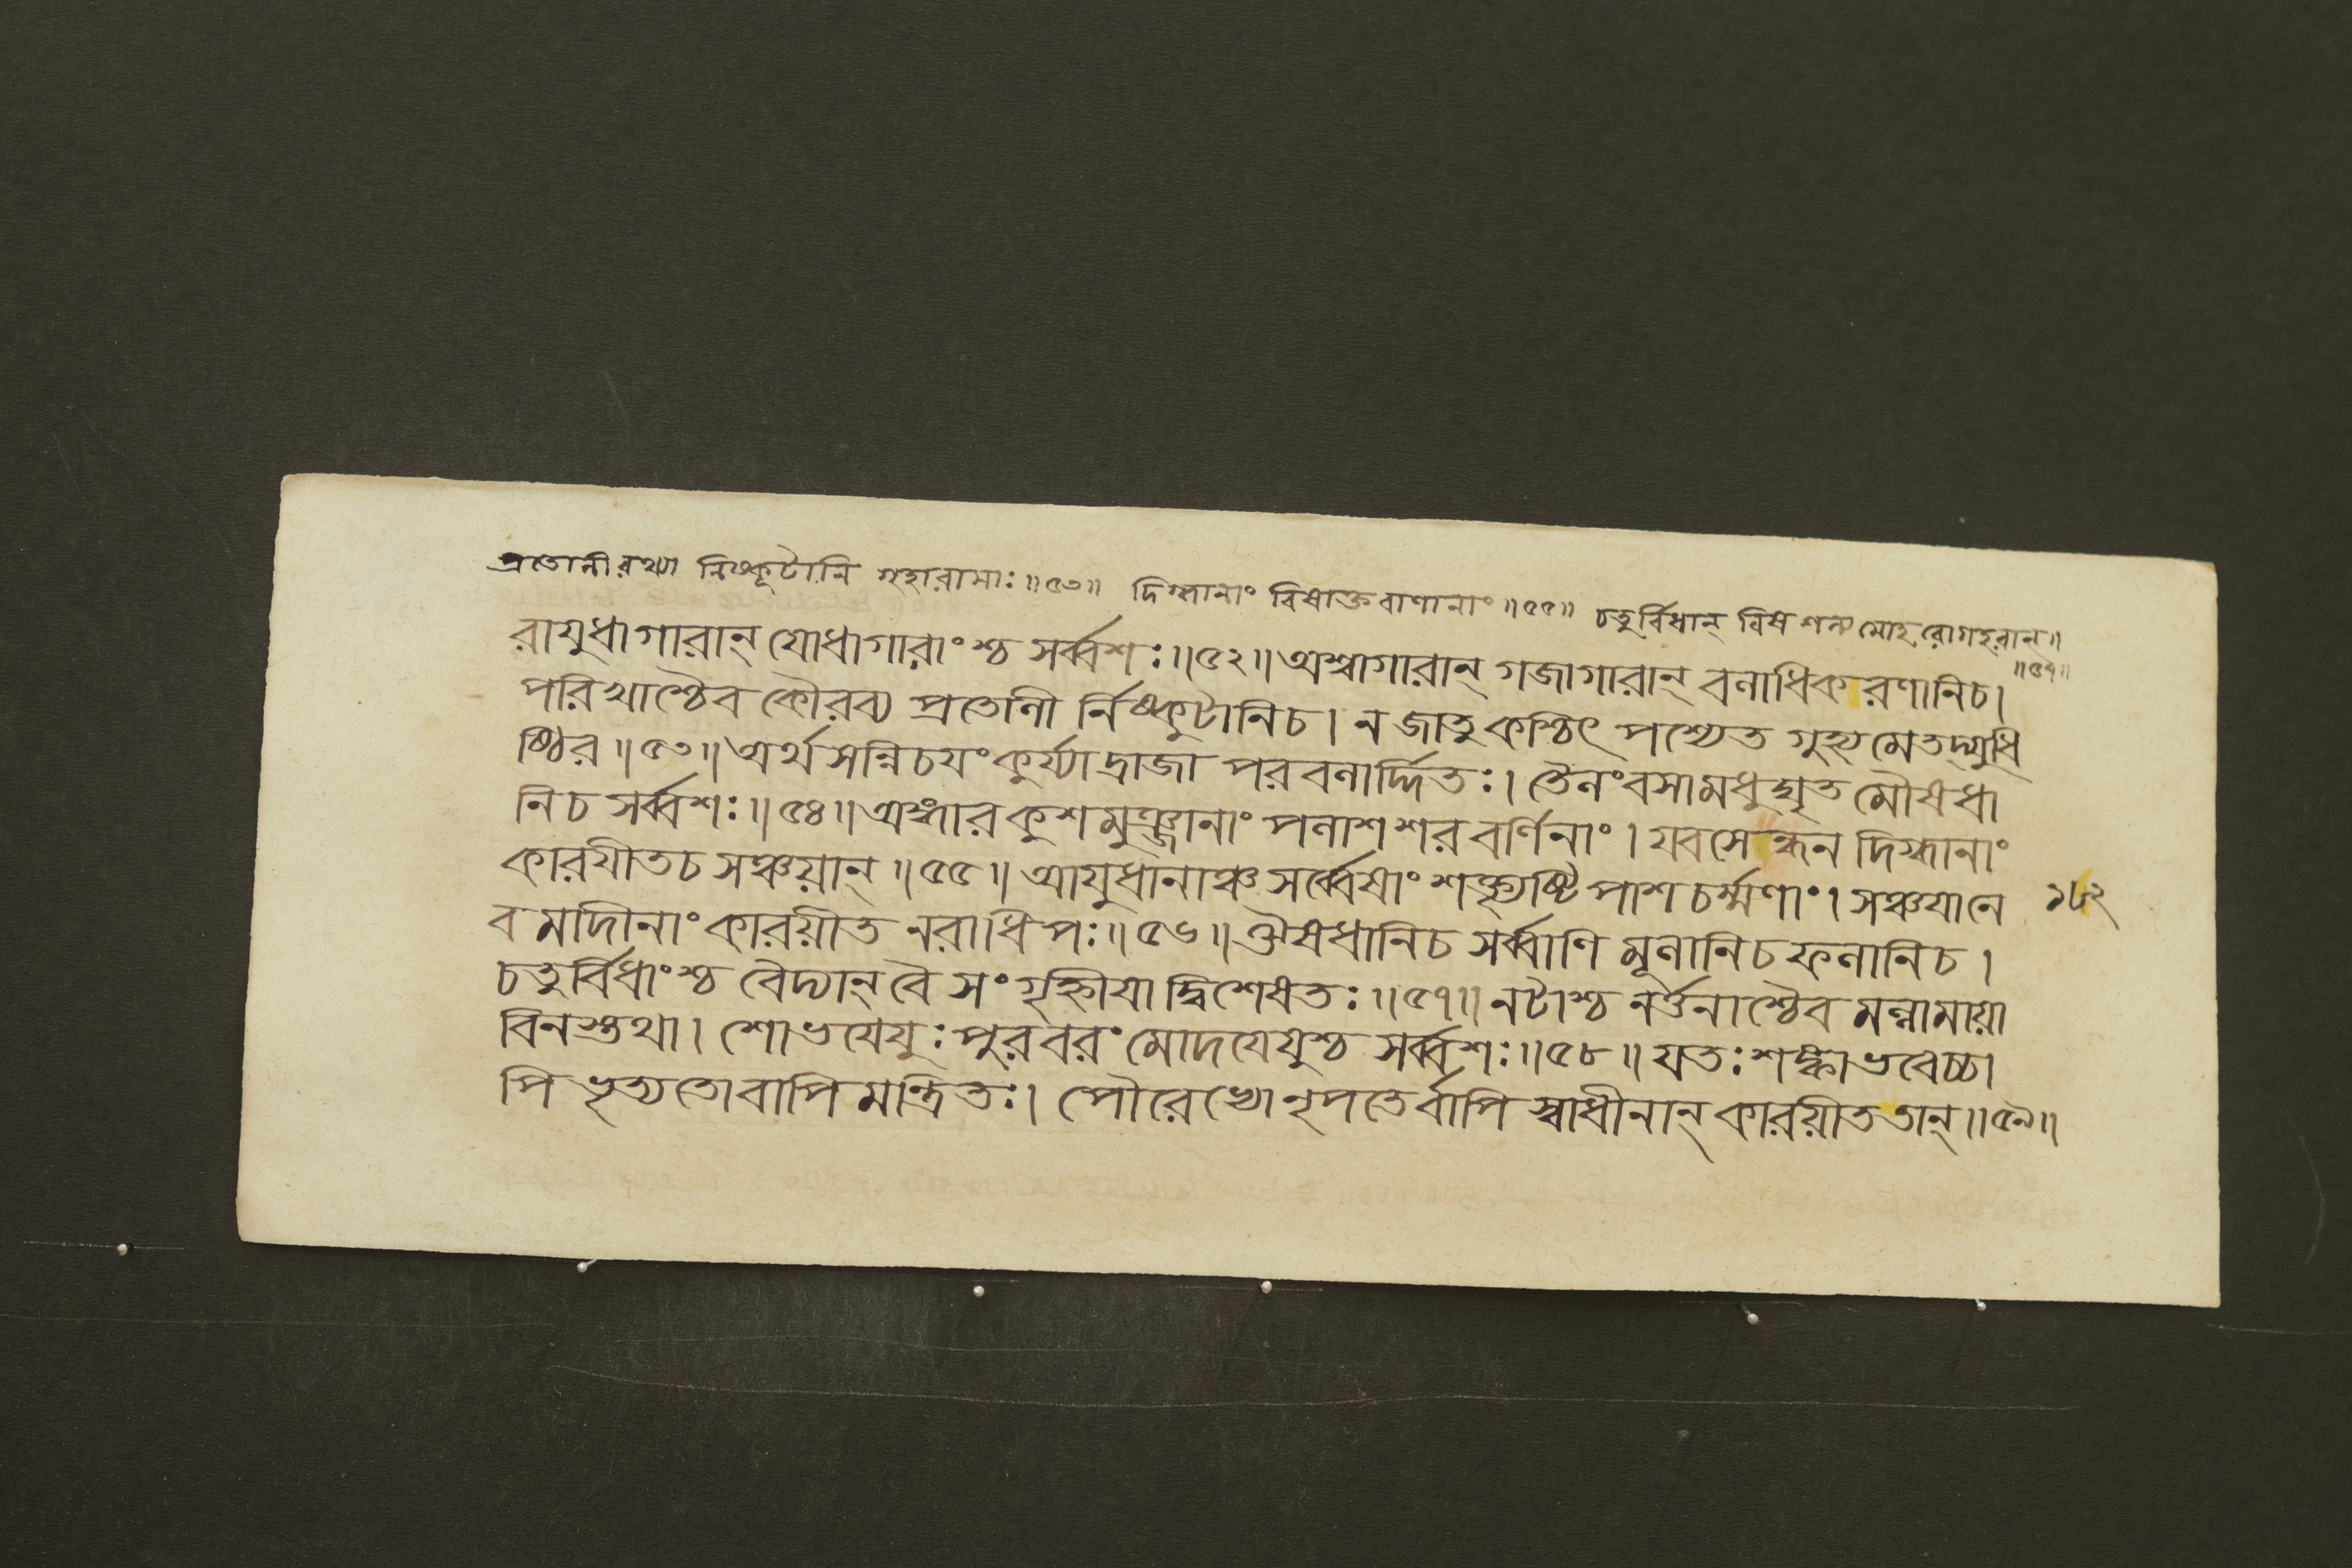 প্রতোলী রথ্যা নিষ্কুটানি গৃহারামাঃ॥৫৩॥ দিগ্ধানাং বিষাক্তবাণানাং॥৫৫॥ চতুর্বিধান্ বিষ শল্য মোহ রোগহরান্॥
॥৫৭॥
রায়ুধাগারান্ যোধাগারাংশ্চ সর্ব্বশঃ॥৫২॥ অশ্বাগারান্ গজাগারান্ বলাধিকরণানিচ।
পরিখাশ্চৈব কৌরব্য প্রতোলী র্নিষ্কুটানিচ। ন জাতু কশ্চিৎ পশ্যেত গুহ্যমেতদ্যুধি
ষ্ঠির॥৫৩॥ অর্থসন্নিচয়ং কুর্য্যাদ্রাজা পরবলার্দ্দিতঃ। তৈলং বসামধুঘৃত মৌষধা
নিচ সর্ব্বশঃ॥৫৪॥ অঙ্গার কুশ মুঞ্জানাং পলাশ শর বর্ণিনাং। যবসেন্ধন দিগ্ধানাং
কারয়ীতচ সঞ্চয়ান্॥৫৫॥ আয়ুধানাঞ্চ সর্ব্বেষাং শক্ত্যৃষ্টি পাশ চর্ম্মণাং। সঞ্চয়ানে
১৮২
ব মাদীনাং কারয়ীত নরাধিপঃ॥৫৬॥ ঔষধানিচ সর্ব্বাণি মূলানিচ ফলানিচ।
চতুর্বিধাংশ্চ বৈদ্যান্ বৈ সংগৃহ্নীয়াদ্বিশেষতঃ॥৫৭॥ নটাশ্চ নর্ত্তনাশ্চৈব মল্লামায়া
বিনস্তথা। শোভয়েয়ুঃ পুরবরং মোদয়েয়ুশ্চ সর্ব্বশঃ॥৫৮॥ যতঃ শঙ্কা ভবেচ্চা
পি ভৃত্যতোবাপি মন্ত্রিতঃ। পৌরেভ্যো নৃপতের্বাপি স্বাধীনান্ কারয়ীত তান্॥৫৯॥